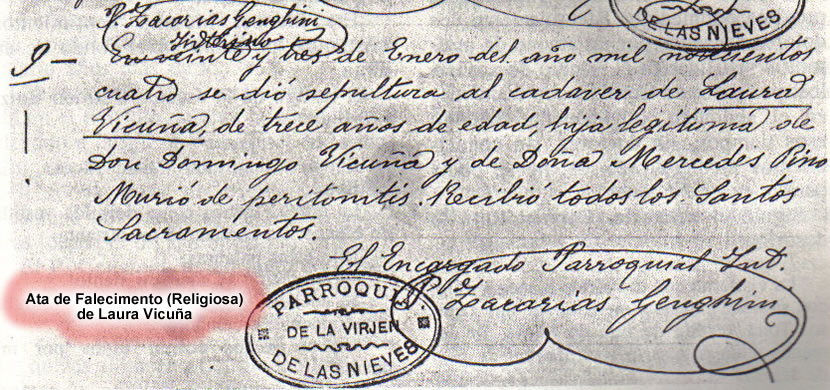 P. Zacarias Genghini
Interino
DE LAS NIEVES
9 - En veinte y tres de Enero del año mil novecientos
cuatro se dió sepultura al cadaver de Laura
Vicuña, de trece años de edad, hija legitima de
Don Domingo Vicuña y de Doña Mercedes Pino
Murió de peritonitis. Recibió todos los Santos
Sacramentos.
El Encargado Parroquial Int.
P. Zacarias Genghini
PARROQUIA
DE LA VIRJEN
DE LAS NIEVES
Ata de Falecimento (Religiosa)
de Laura Vicuña